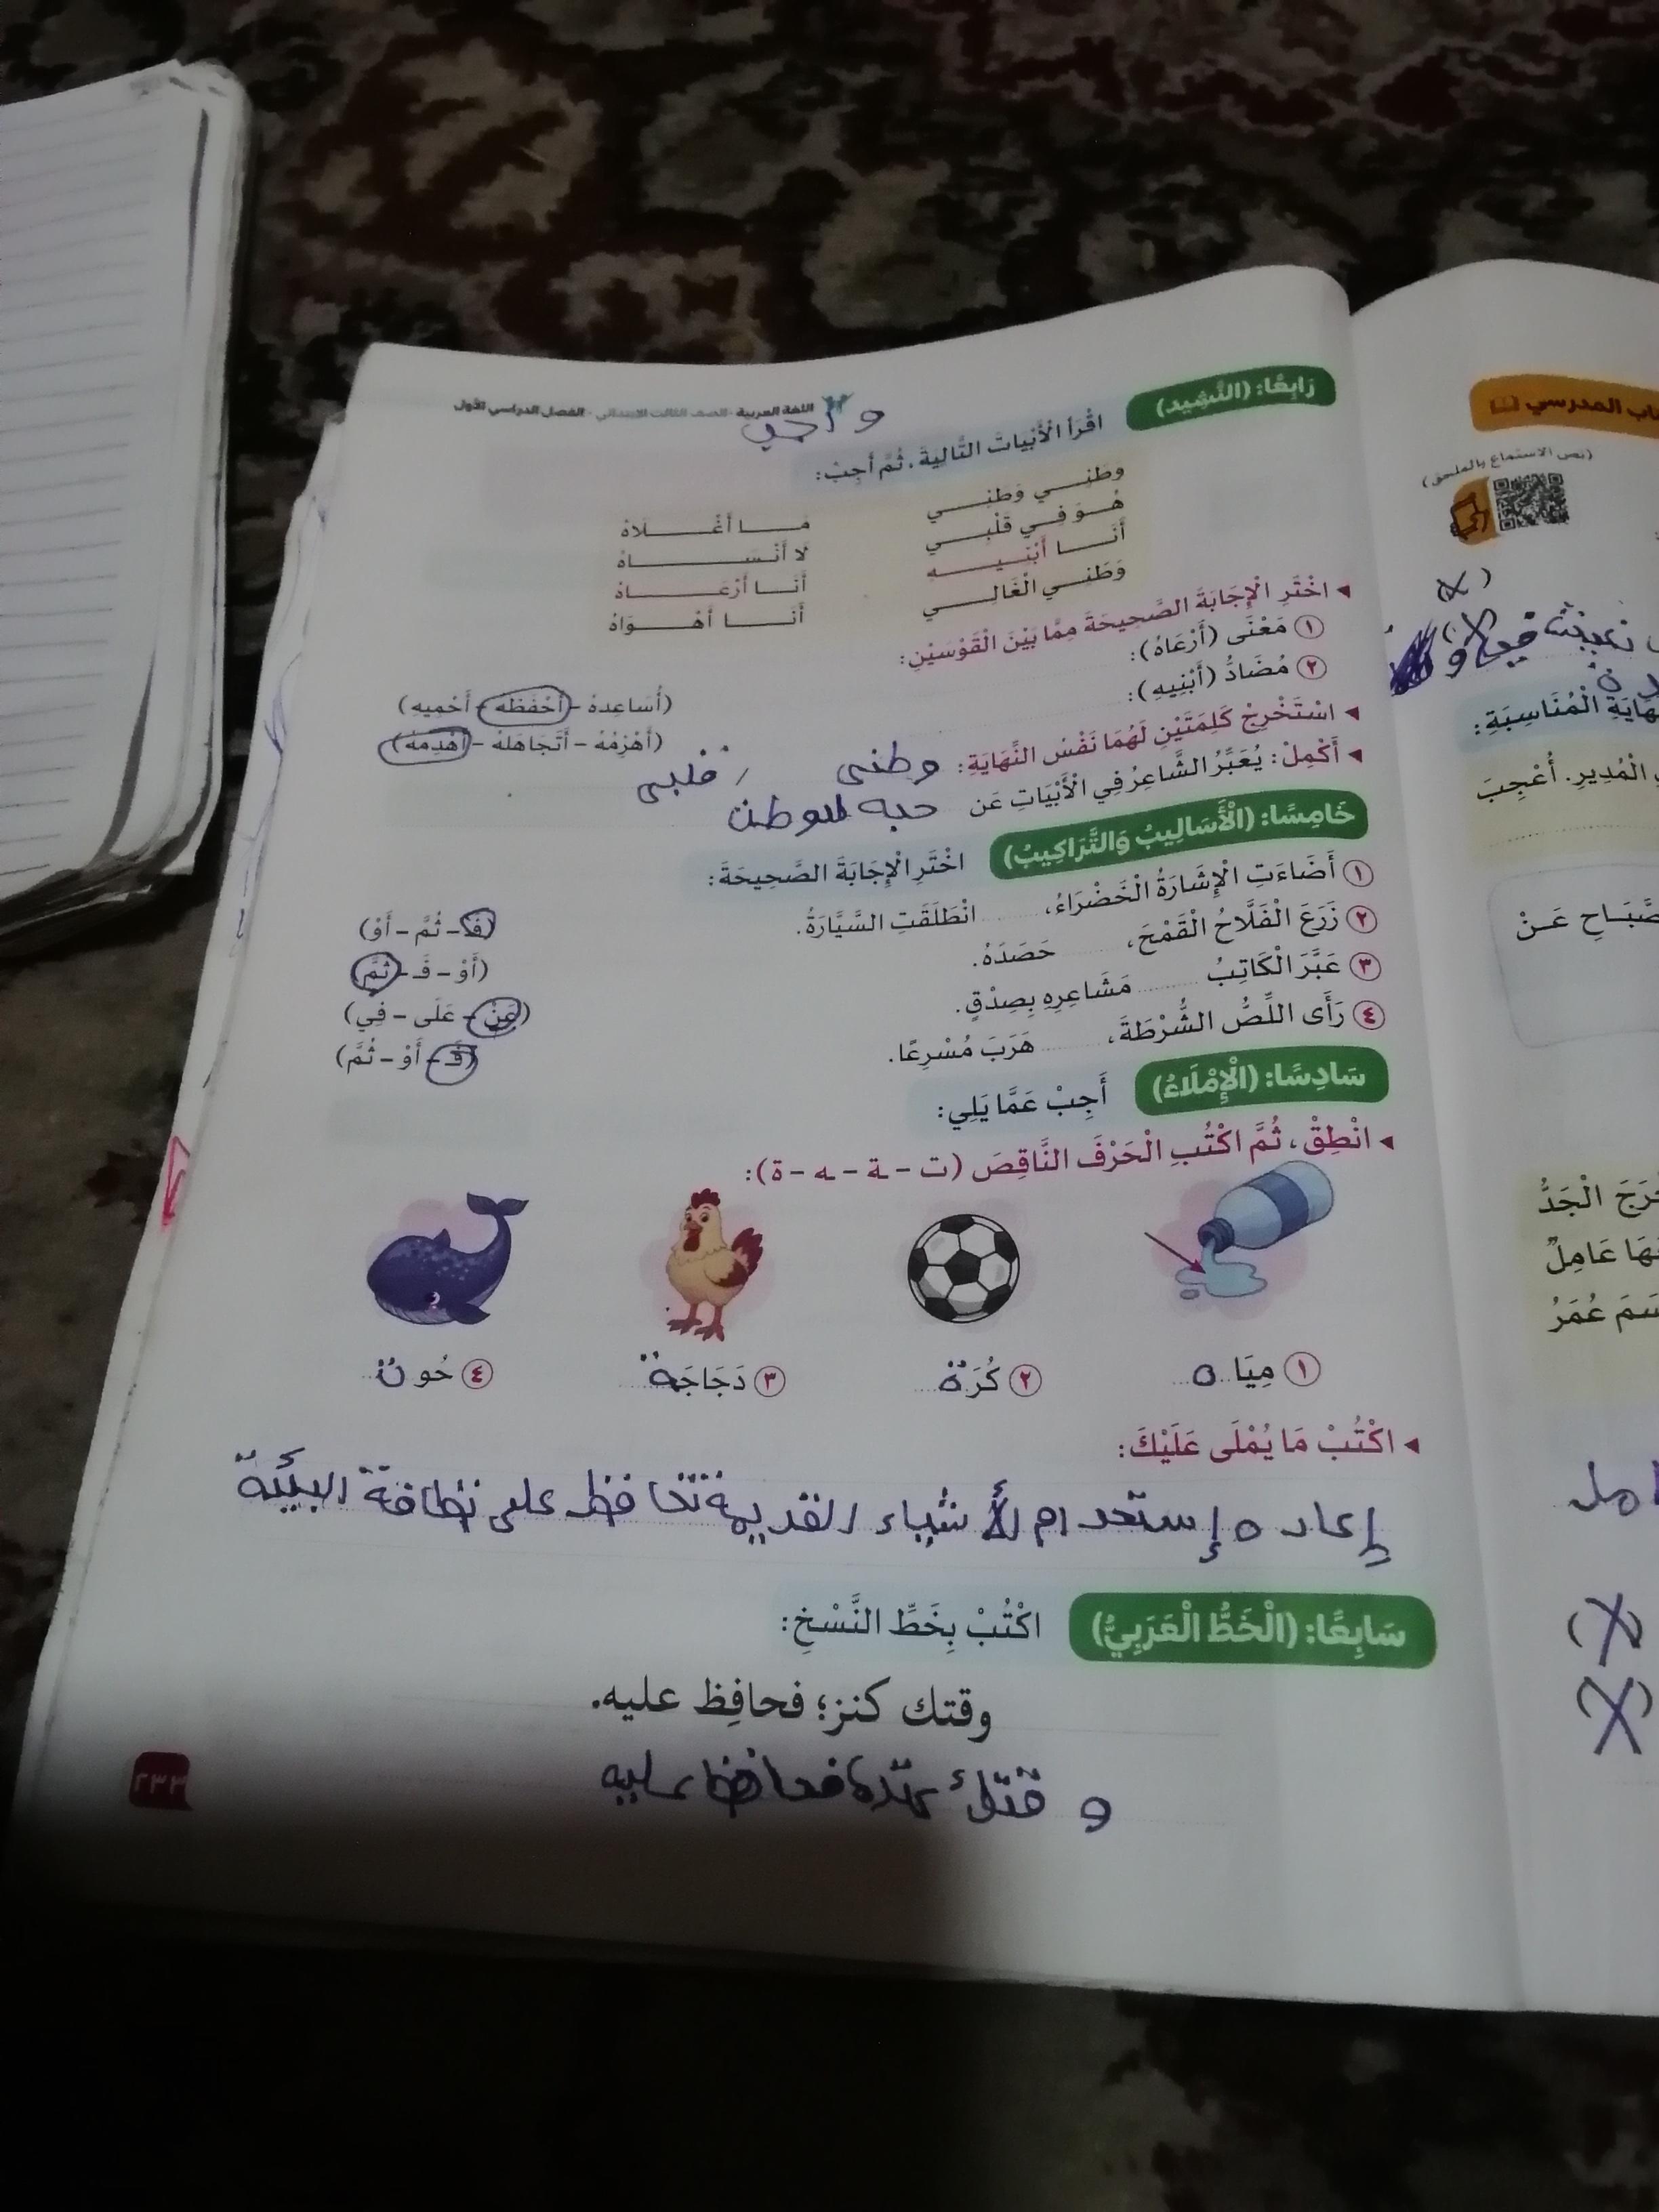 اللغة العربية - الصف الثالث الابتدائي - الفصل الدراسي الأول
واجب
رَابِعًا: (النَّشِيد) اقْرَأِ الْأَبْيَاتَ التَّالِيَةَ، ثُمَّ أَجِبْ:
وَطَنِي وَطَنِي مَا أَغْلَاهُ
هُوَ فِي قَلْبِي لَا أَنْسَاهُ
أَنَا أَبْنِيهِ أَنَا أَرْعَاهُ
وَطَنِي الْغَالِي أَنَا أَهْوَاهُ
◂ اخْتَرِ الْإِجَابَةَ الصَّحِيحَةَ مِمَّا بَيْنَ الْقَوْسَيْنِ:
١ مَعْنَى (أَرْعَاهُ): (أُسَاعِدهُ - أَحْفَظه - أَحْمِيهِ)
٢ مُضَادُّ (أَبْنِيهِ): (أَهْزِمُهُ - أَتَجَاهَلهُ - أَهْدِمهُ)
◂ اسْتَخْرِجْ كَلِمَتَيْنِ لَهُمَا نَفْسُ النِّهَايَةِ: وطنى , قلبى
◂ أَكْمِلْ: يُعَبِّرُ الشَّاعِرُ فِي الْأَبْيَاتِ عَن حبه للوطن
خَامِسًا: (الْأَسَالِيبُ وَالتَّرَاكِيبُ) اخْتَرِ الْإِجَابَةَ الصَّحِيحَةَ:
١ أَضَاءَتِ الْإِشَارَةُ الْخَضْرَاءُ، ........ انْطَلَقَتِ السَّيَّارَةُ. (فَـ - ثُمَّ - أَوْ)
٢ زَرَعَ الْفَلَّاحُ الْقَمْحَ، ........ حَصَدَهُ. (أَوْ - فَـ - ثُمَّ)
٣ عَبَّرَ الْكَاتِبُ ........ مَشَاعِرِهِ بِصِدْقٍ. (عَنْ - عَلَى - فِي)
٤ رَأَى اللِّصُّ الشُّرْطَةَ، ........ هَرَبَ مُسْرِعًا. (فَـ - أَوْ - ثُمَّ)
سَادِسًا: (الْإِمْلَاءُ) أَجِبْ عَمَّا يَلِي:
◂ انْطِقْ، ثُمَّ اكْتُبِ الْحَرْفَ النَّاقِصَ (ت - ـة - ـه - ة):
١ مِيَا ه ٢ كُرَة ٣ دَجَاجَـة ٤ حُوت
◂ اكْتُبْ مَا يُمْلَى عَلَيْكَ:
إعاد ه إستخدام الأشياء القديمة تحافظ على نظافة البيئة
سَابِعًا: (الْخَطُّ الْعَرَبِيُّ) اكْتُبْ بِخَطِّ النَّسْخِ:
وقتك كنز؛ فحافِظ عليه.
٢٣٣
اب المدرسي
(نص الاستماع بالملحق)
(X)
ـهَايَةِ الْمُنَاسِبَةِ:
الْمُدِيرِ. أُعْجِبَ
صَّبَاحِ عَنْ
خْرَجَ الْجَدُّ
هَا عَامِلٌ
سَمَ عُمَرُ
(X)
(X)